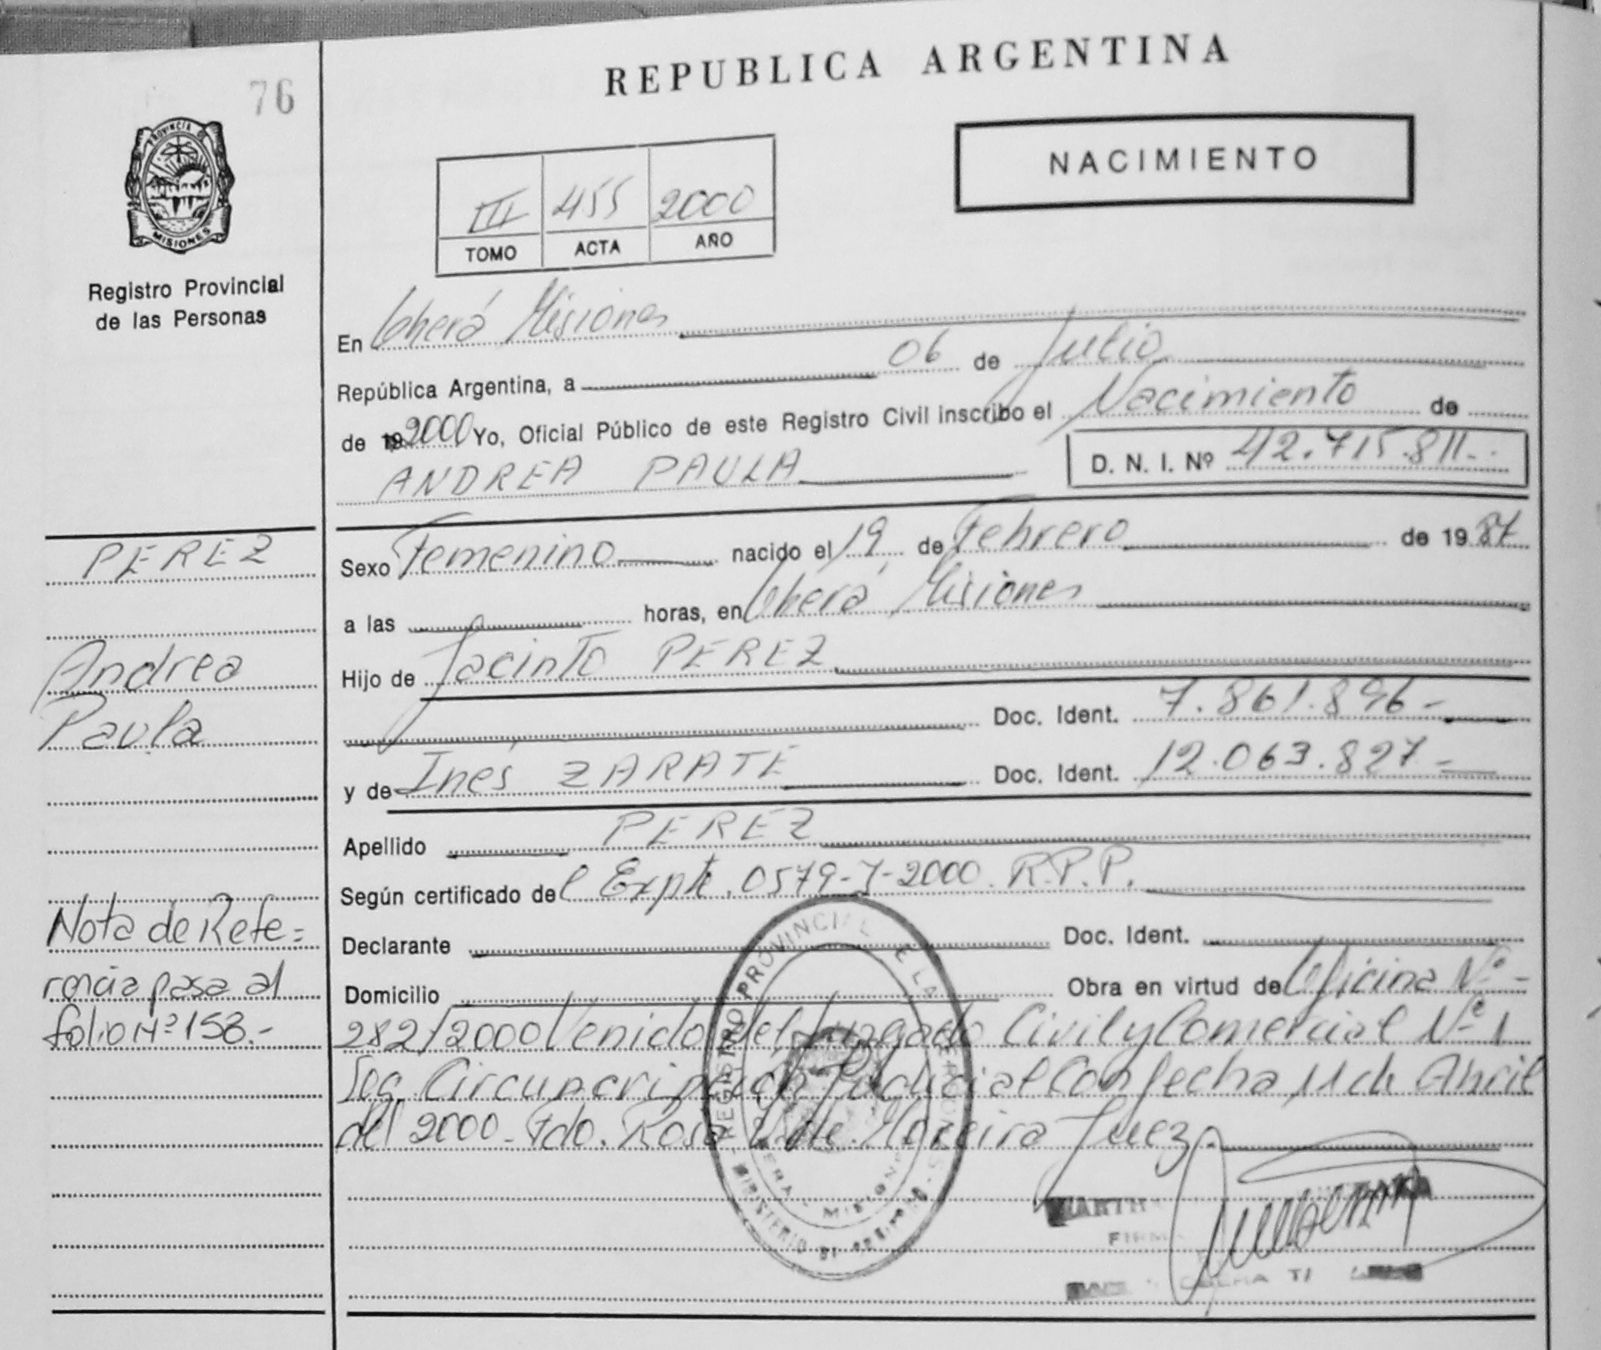 76
REPUBLICA ARGENTINA
NACIMIENTO
PROVINCIA DE
MISIONES
Registro Provincial
de las Personas
III 455 2000
TOMO ACTA AÑO
En Oberá Misiones
República Argentina, a 06 de Julio
de 192000 Yo, Oficial Público de este Registro Civil inscribo el Nacimiento de
ANDREA PAULA D. N. I. Nº 42.715.811.-
PEREZ
Andrea
Paula
Sexo Femenino nacido el 19 de Febrero de 19 87
a las horas, en Oberá Misiones
Hijo de Jacinto PEREZ
Doc. Ident. 7.861.896-
y de Inés ZARATE Doc. Ident. 12.063.827-
Apellido PEREZ
Según certificado del Expte. 0579-J-2000 R.P.P.
Nota de Refe=
rencia pasa al
folio Nº 158.-
Declarante Doc. Ident.
Domicilio Obra en virtud de Oficina Nº-
282/2000 Venido del Juzgado Civil y Comercial Nº 1
Seg. Circunscripción Judicial Con fecha 11 de Abril
del 2000- Fdo. Rosa Moreira Juez.
REGISTRO PROVINCIAL DE LAS PERSONAS
MISIONES
MINISTERIO DE GOBIERNO